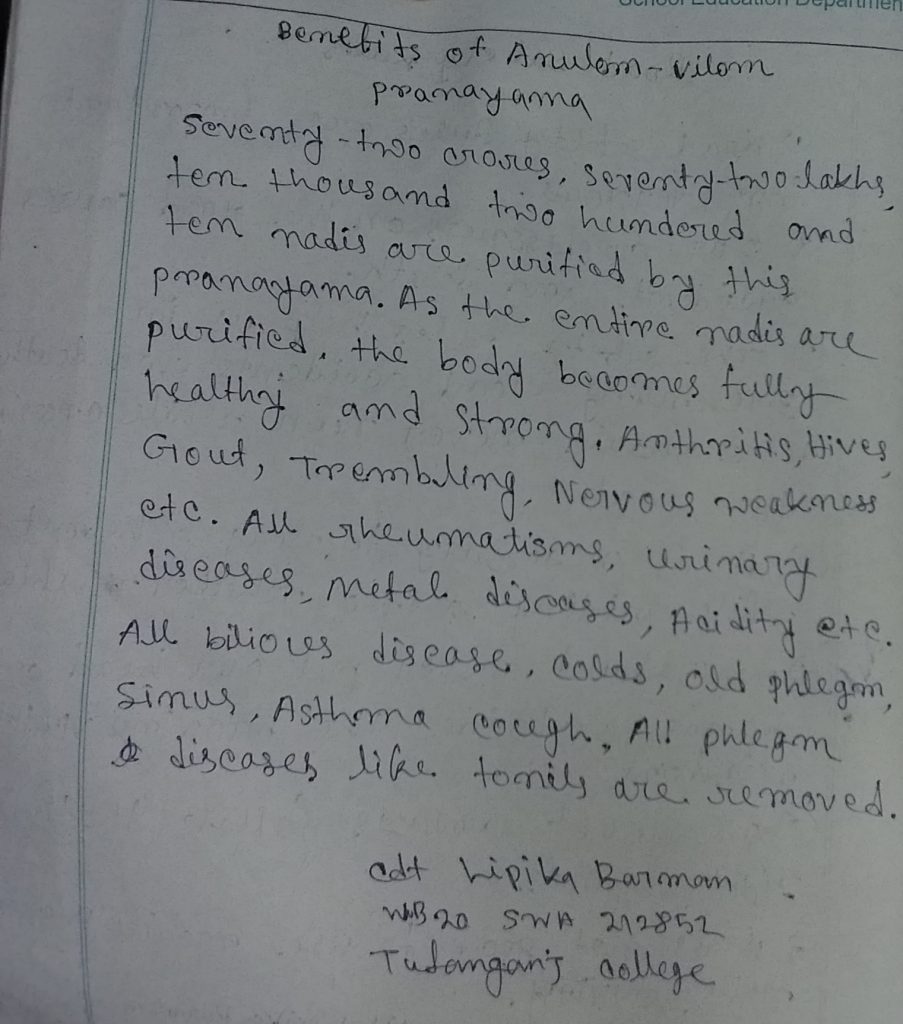 School Education Departmen
Benefits of Anulom-vilom
pranayama
Seventy-two crores, seventy-two lakhs,
ten thousand two hundered and
ten nadis are purified by this
pranayama. As the entire nadis are
purified, the body becomes fully
healthy and strong. Arthritis, Hives,
Gout, Trembling, Nervous weakness
etc. All rheumatisms, urinary
diseases, Metal diseases, Acidity etc.
All bilioues disease, colds, old phlegm,
Sinus, Asthma cough, All phlegm
diseases like tonils are removed.
cdt Lipika Barman
WB20 SWA 212852
Tufanganj college